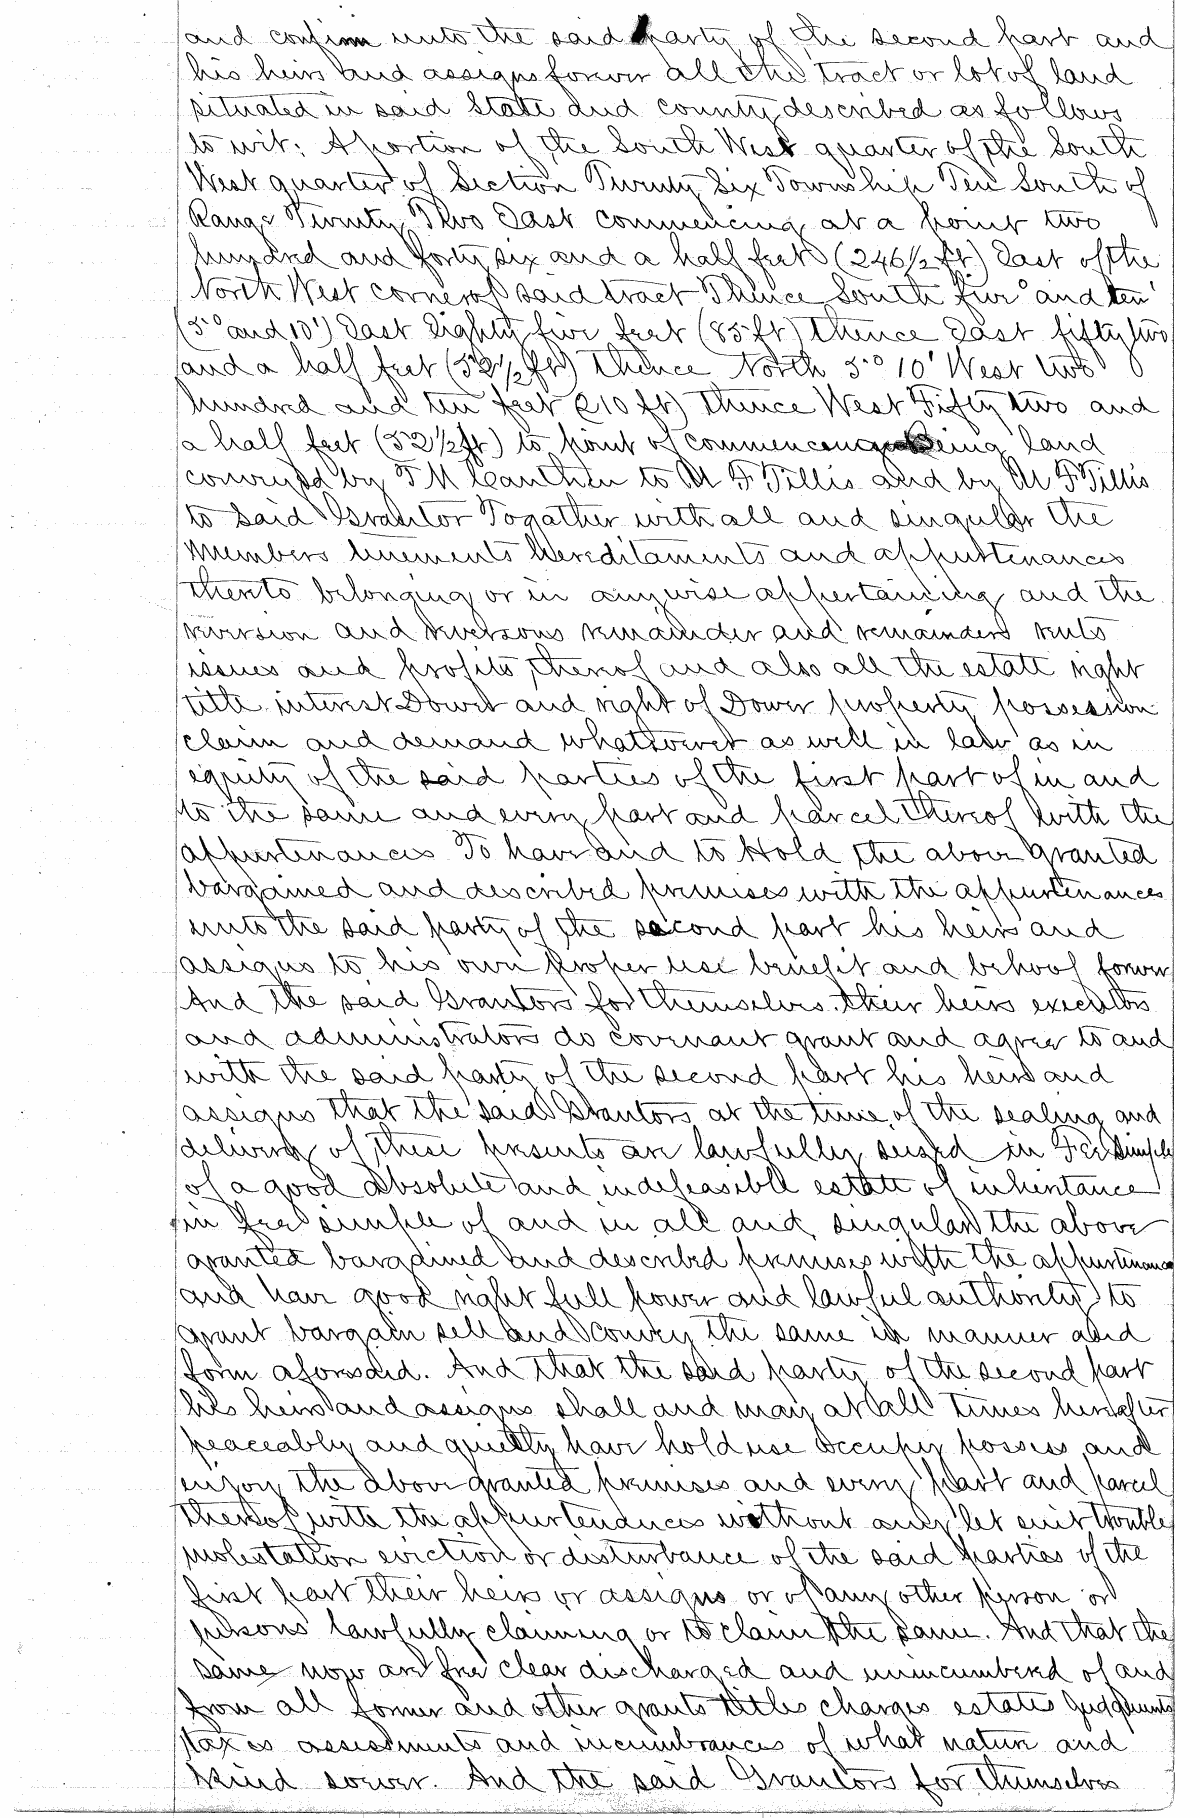 and confirm unto the said party of the second part and
his heirs and assigns forever all the tract or lot of land
situated in said State and county described as follows
to wit: A portion of the South West quarter of the South
West quarter of Section Twenty Six Township Ten South of
Range Twenty Two East commencing at a point two
hundred and forty six and a half feet (246 1/2 ft) East of the
North West corner of said tract Thence South five° and ten'
(5° and 10') East Eighty five feet (85 ft) thence East fifty two
and a half feet (52 1/2 ft) thence North 5° 10' West two
hundred and ten feet (210 ft) thence West Fifty two and
a half feet (52 1/2 ft) to point of commencement being land
conveyed by T M Cauthen to M F Tillis and by M F Tillis
to said Grantor Together with all and singular the
members tenements hereditaments and appurtenances
thereto belonging or in anywise appertaining and the
reversion and reversons remainder and remainders rents
issues and profits thereof and also all the estate right
title interest Dower and right of Dower property possession
claim and demand whatsoever as well in law as in
equity of the said parties of the first part of in and
to the same and every part and parcel thereof with the
appurtenances To have and to Hold the above granted
bargained and described premises with the appurtenances
unto the said party of the second part his heirs and
assigns to his own proper use benefit and behoof forever
And the said Grantors for themselves their heirs executors
and administrators do covenant grant and agree to and
with the said party of the second part his heirs and
assigns that the said Grantors at the time of the sealing and
delivery of these presents are lawfully seized in Fee Simple
of a good absolute and indefeasible estate of inheritance
in fee simple of and in all and singular the above
granted bargained and described premises with the appurtenances
and have good right full power and lawful authority to
grant bargain sell and convey the same in manner and
form aforesaid. And that the said party of the second part
his heirs and assigns shall and may at all times hereafter
peaceably and quietly have hold use occupy possess and
enjoy the above granted premises and every part and parcel
thereof with the appurtenances without any let suit trouble
molestation eviction or disturbance of the said parties of the
first part their heirs or assigns or of any other person or
persons lawfully claiming or to claim the same. And that the
same now are free clear discharged and unincumbered of and
from all former and other grants titles charges estates judgments
taxes assessments and incumbrances of what nature and
kind soever. And the said Grantors for themselves